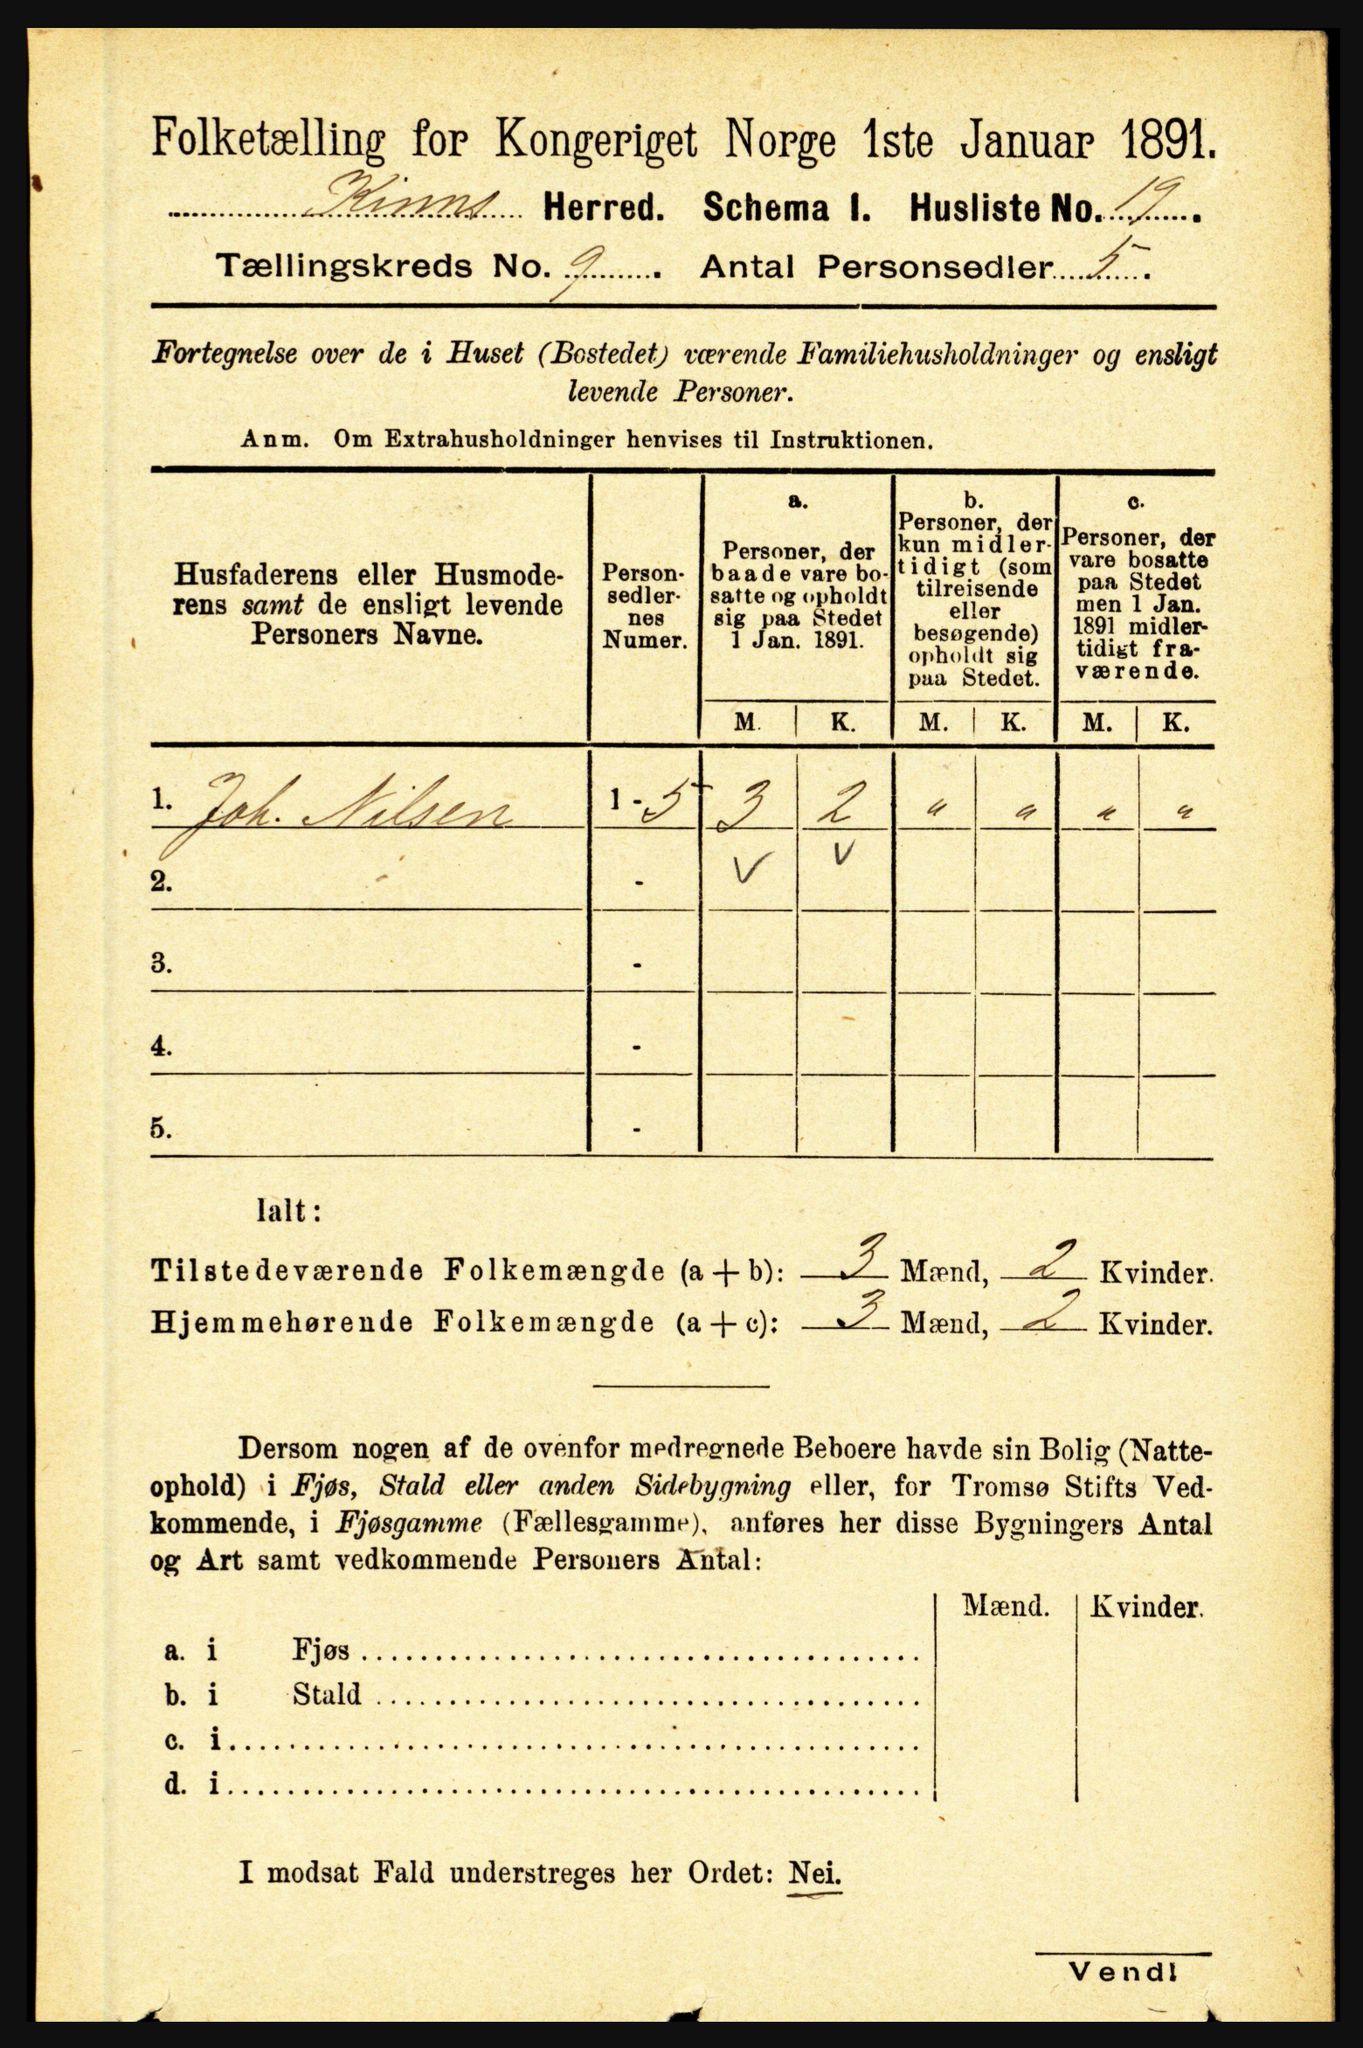 Folketælling for Kongeriget Norge 1ste Januar 1891.
Kinns Herred. Schema I. Husliste No. 19.
Tællingskreds No. 9. Antal Personsedler 5.
Fortegnelse over de i Huset (Bostedet) værende Familiehusholdninger og ensligt
levende Personer.
Anm. Om Extrahusholdninger henvises til Instruktionen.
Husfaderens eller Husmode-
rens samt de ensligt levende
Personers Navne.
Person-
sedler-
nes
Numer.
a.
Personer, der
baade vare bo-
satte og opholdt
sig paa Stedet
1 Jan. 1891.
b.
Personer, der
kun midler-
tidigt (som
tilreisende
eller
besøgende)
opholdt sig
paa Stedet.
c.
Personer, der
vare bosatte
paa Stedet
men 1 Jan.
1891 midler-
tidigt fra-
værende.
M. K. M. K. M. K.
1. Joh. Nilsen 1 - 5 3 2 " " " "
2. - V V
3. -
4. -
5. -
Ialt:
Tilstedeværende Folkemængde (a + b): 3 Mænd, 2 Kvinder.
Hjemmehørende Folkemængde (a + c): 3 Mænd, 2 Kvinder.
Dersom nogen af de ovenfor medregnede Beboere havde sin Bolig (Natte-
ophold) i Fjøs, Stald eller anden Sidebygning eller, for Tromsø Stifts Ved-
kommende, i Fjøsgamme (Fællesgamme), anføres her disse Bygningers Antal
og Art samt vedkommende Personers Antal:
Mænd. Kvinder.
a. i Fjøs
b. i Stald
c. i
d. i
I modsat Fald understreges her Ordet: Nei.
Vend!